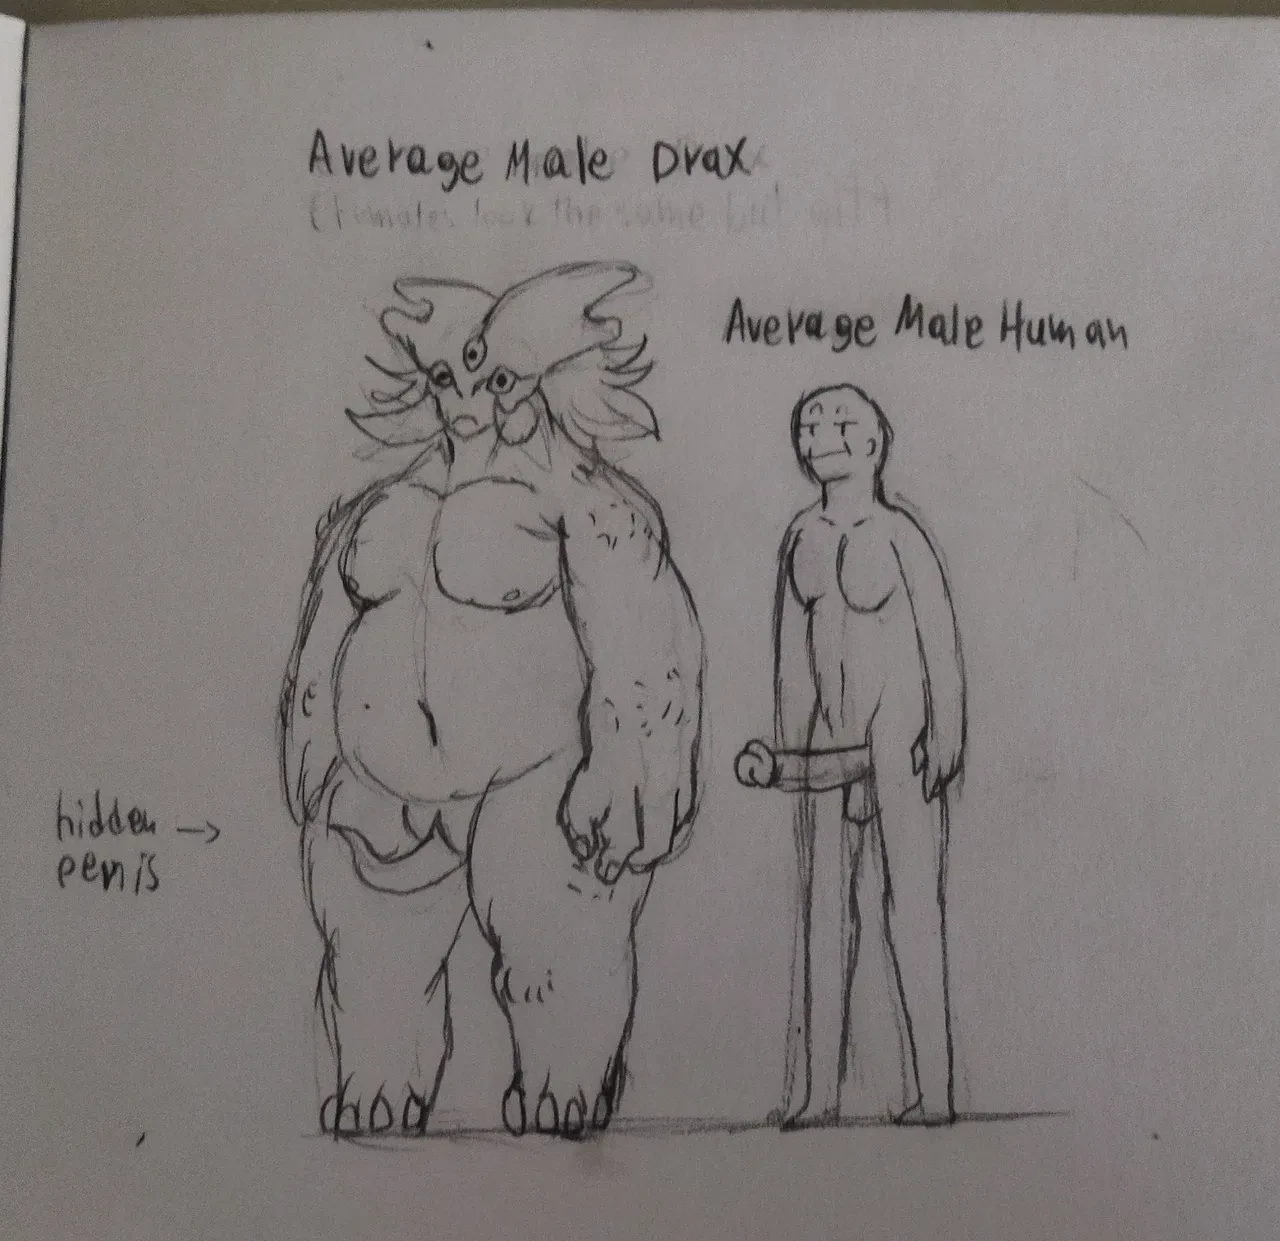 Average Male Drax
look the same but
Average Male Human
hidden →
penis